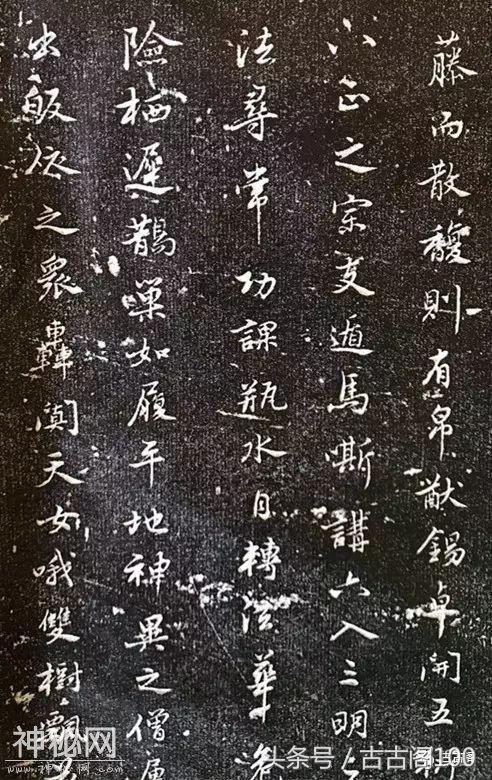 藤而散馥則有帛猷錫卓開五
八正之宗支遁馬嘶講六入三明之
法尋常功課瓶水日轉法華
險栖遲鵲巢如履平地神異之僧屢
出皈依之衆轟闐天女哦雙樹飄
神秘网
头条号 / 古古阁100